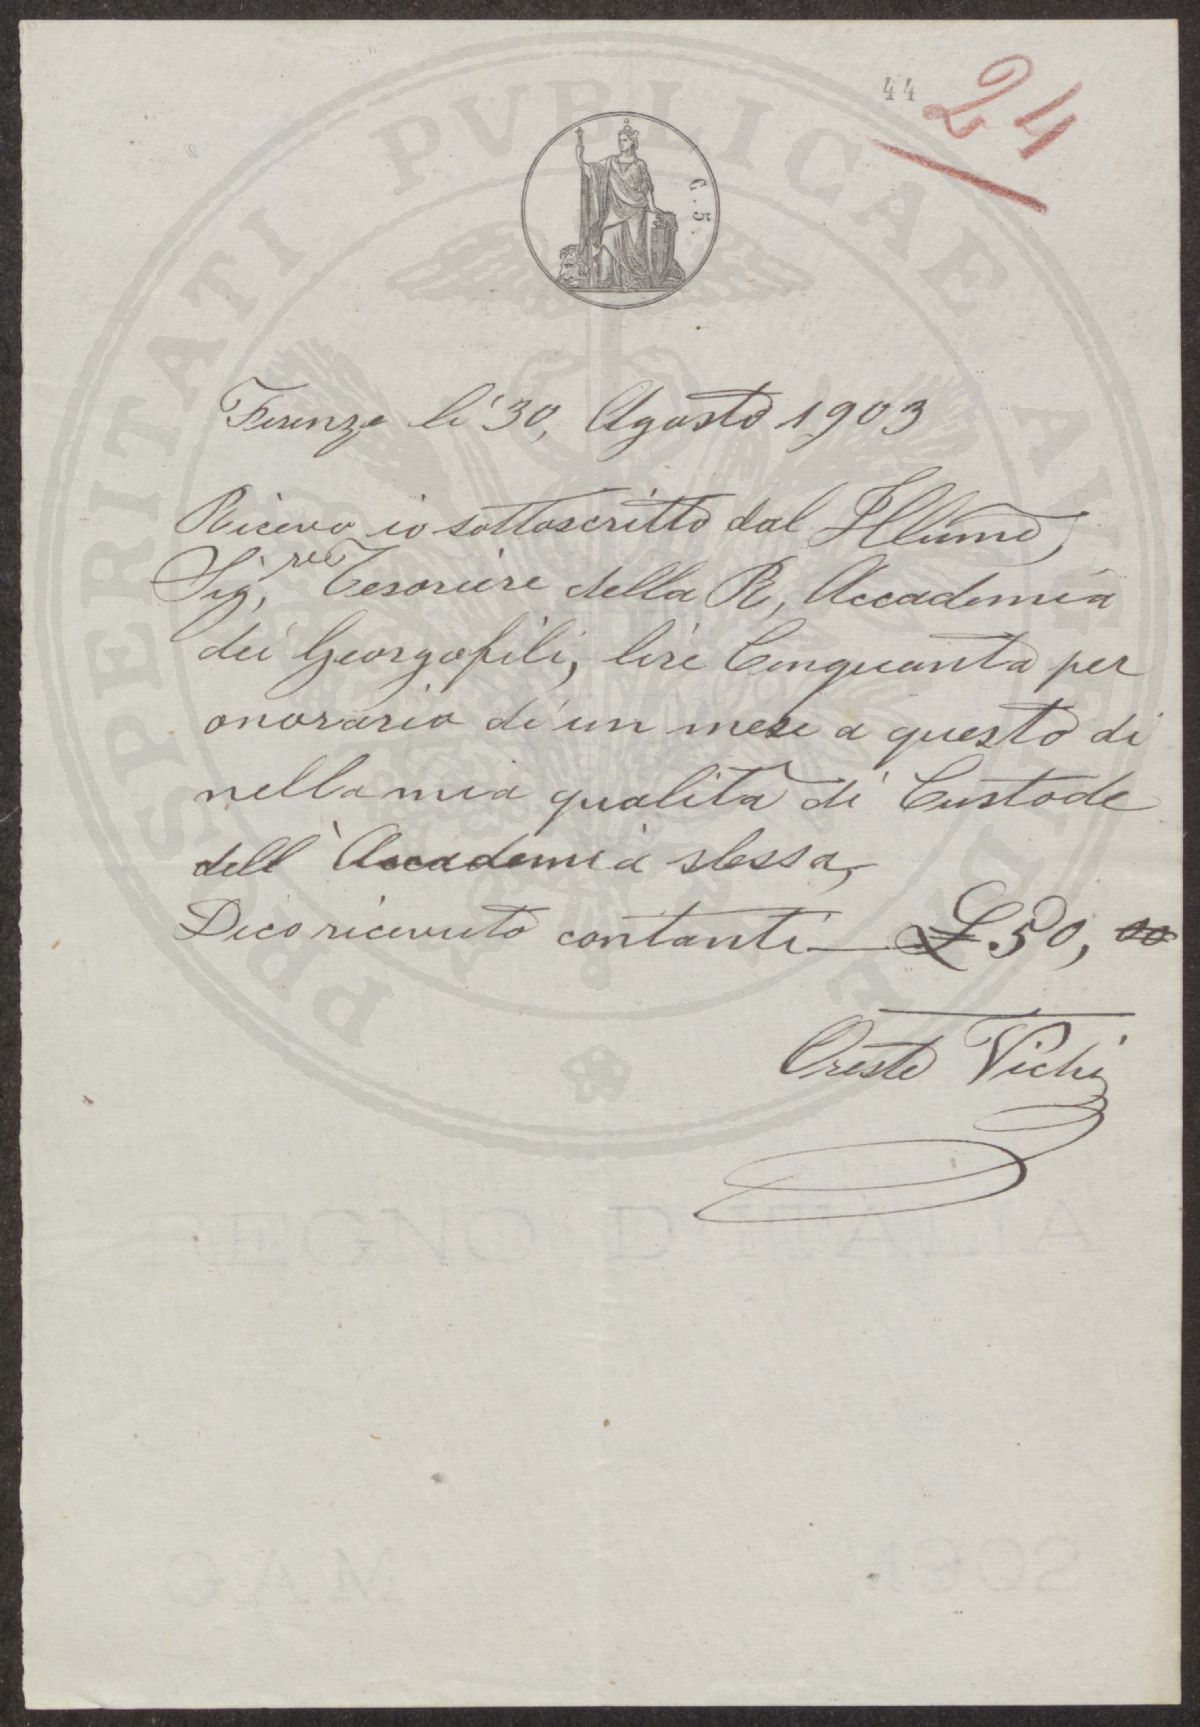 44
24
C. 5.
Firenze li 30, Agosto 1903
Ricevo io sottoscritto dal Illumo,
Sig,re Tesoriere della R, Accademia
dei Georgofili, lire Cinquanta per
onorario di un mese a questo di
nella mia qualità di Custode
dell' Accademia stessa,
Dico ricevuto contanti — £ 50, 00
Oreste Vichi
PROSPERITATI PVBLICAE AVGENDAE
REGNO D'ITALIA